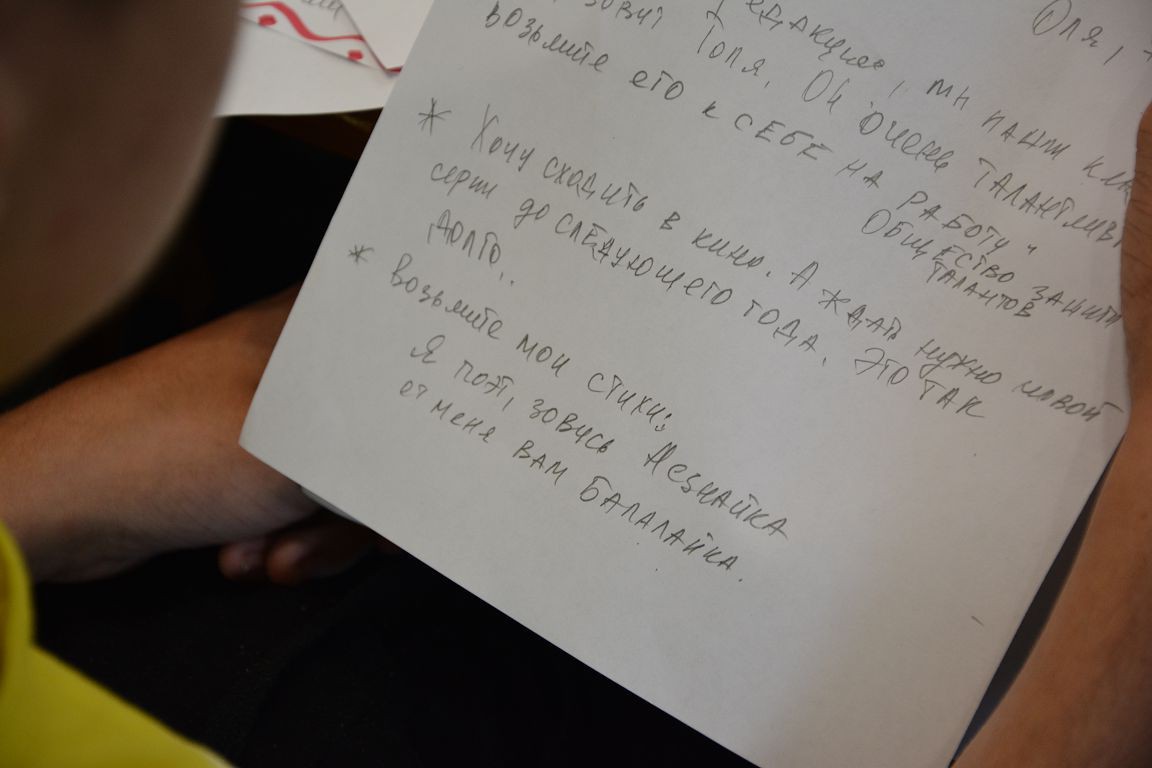 Оля,
редакцию, мы нашли
зовут Толя. Он очень талантливы
возьмите его к себе на работу"
Общество защиты
талантов
* Хочу сходить в кино. А ждать нужно новой
серии до следующего года. Это так
долго..
* Возьмите мои стихи:
Я поэт, зовусь Незнайка
от меня вам балалайка.